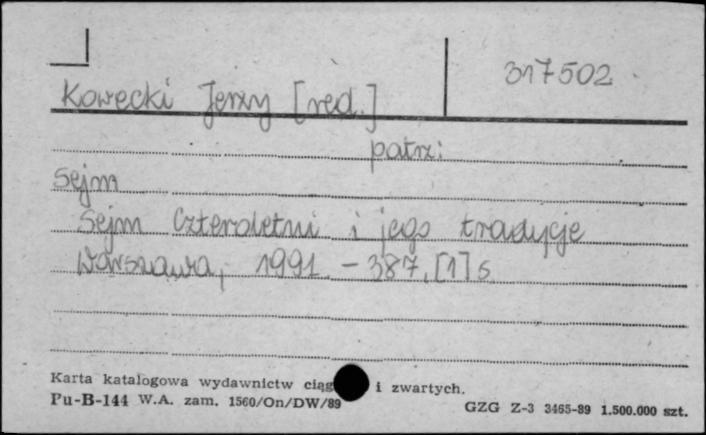 317502
Kowecki Jerzy [red.]
patrz:
Sejm
Sejm Czteroletni i jego tradycje
Warszawa, 1991. – 387, [1] s.
Karta katalogowa wydawnictw ciąg i zwartych.
Pu-B-144 W.A. zam. 1560/On/DW/89
GZG Z-3 3465-89 1.500.000 szt.